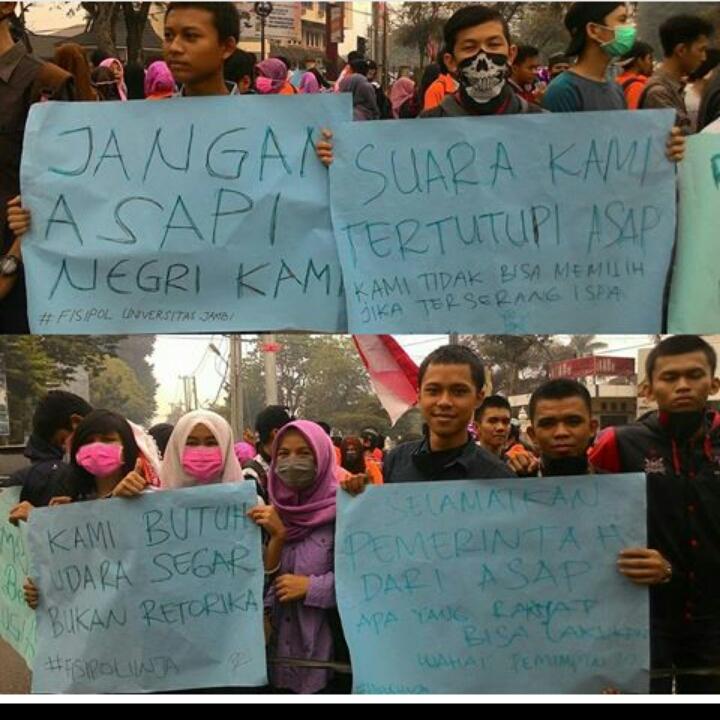 JANGAN
ASAPI
NEGRI KAMI
#FISIPOL UNIVERSITAS JAMBI
SUARA KAMI
TERTUTUPI ASAP
KAMI TIDAK BISA MEMILIH
JIKA TERSERANG ISPA
KAMI BUTUH
UDARA SEGAR
BUKAN RETORIKA
#FISIPOLUNJA
SELAMATKAN
PEMERINTAH
DARI ASAP
APA YANG RAKYAT
BISA LAKUKAN
WAHAI PEMIMPIN